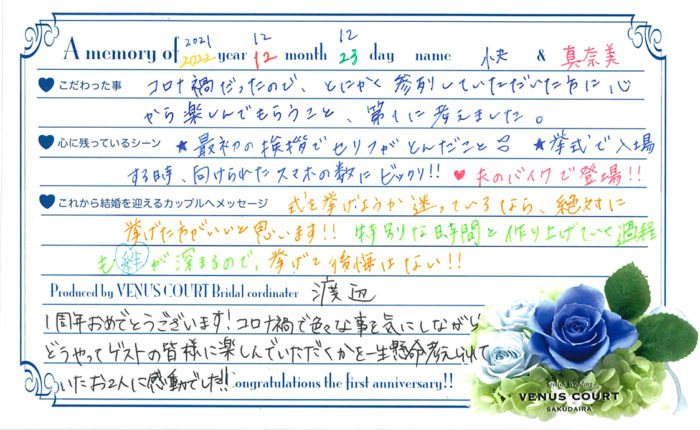 2021 12 12
A memory of 2022 year 12 month 23 day name 快 & 真奈美
こだわった事 コロナ禍だったので、とにかく参列していただいた方に心
から楽しんでもらうこと、第1に考えました。
心に残っているシーン ★最初の挨拶でセリフがとんだこと ★挙式で入場
する時、向けられたスマホの数にビックリ!! ♥夫のバイクで登場!!
これから結婚を迎えるカップルへメッセージ 式を挙げようか迷っているなら、絶対に
挙げた方がいいと思います!! 特別な時間と作り上げていく過程
も絆が深まるので、挙げて後悔はない!!
Produced by VENUS COURT Bridal cordinater 渡辺
1周年おめでとうございます!コロナ禍で色々な事を気にしながら
どうやってゲストの皆様に楽しんでいただくかを一生懸命考えられて
いたお2人に感動でした!! Congratulations the first anniversary!!
VENUS COURT
SAKUDAIRA